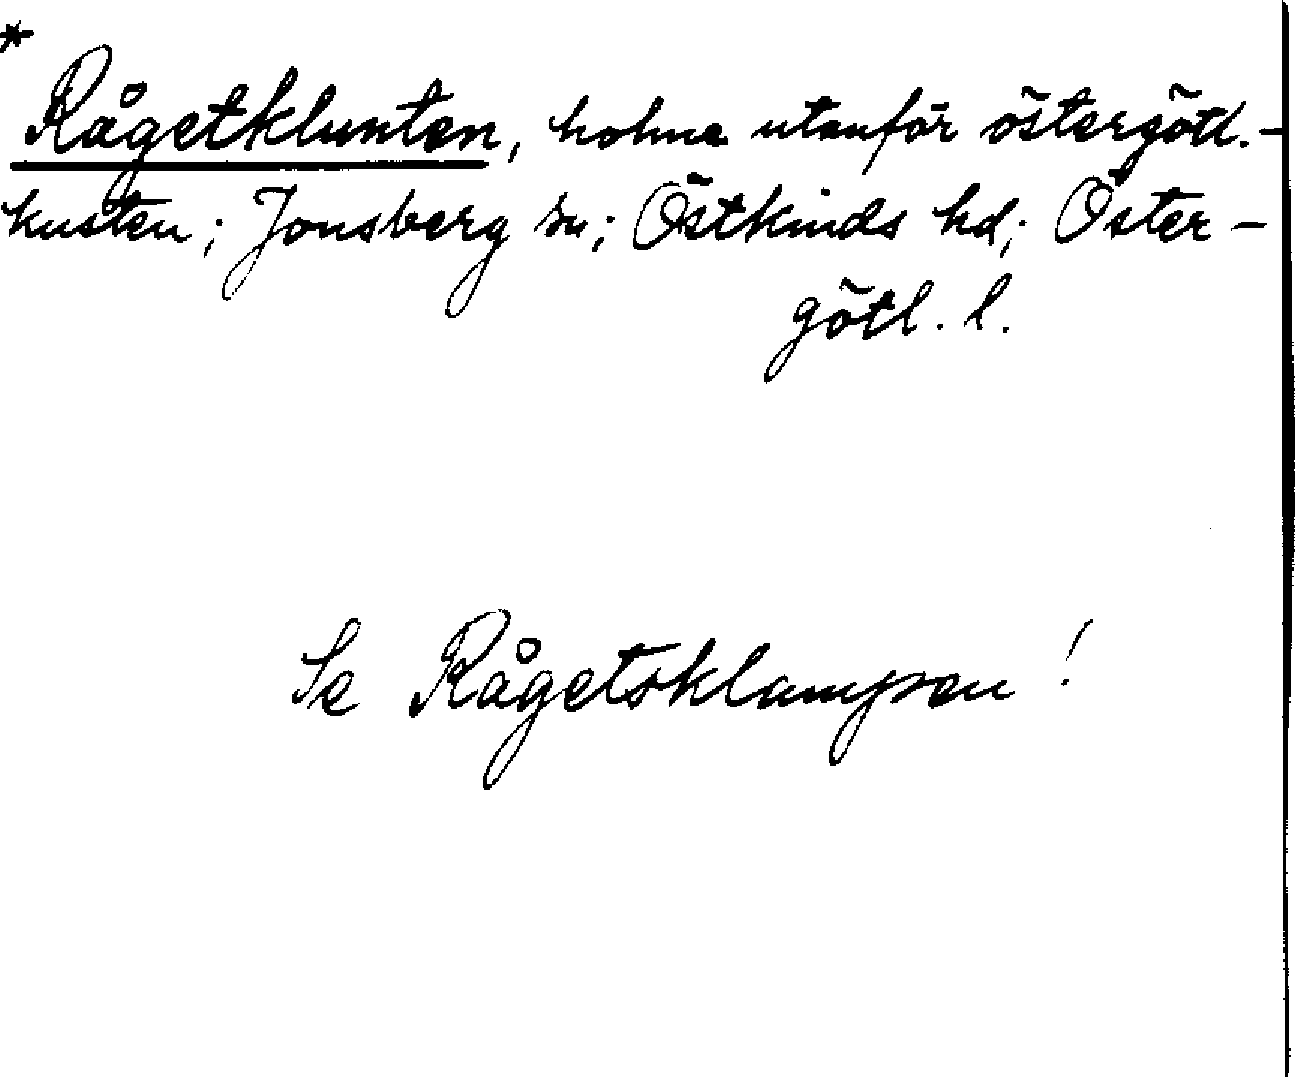 * Rågetklunten, holme utanför östergötl.-
kusten; Jonsberg sn; Östkinds hd; Öster-
götl. l.
Se Rågetsklampen!